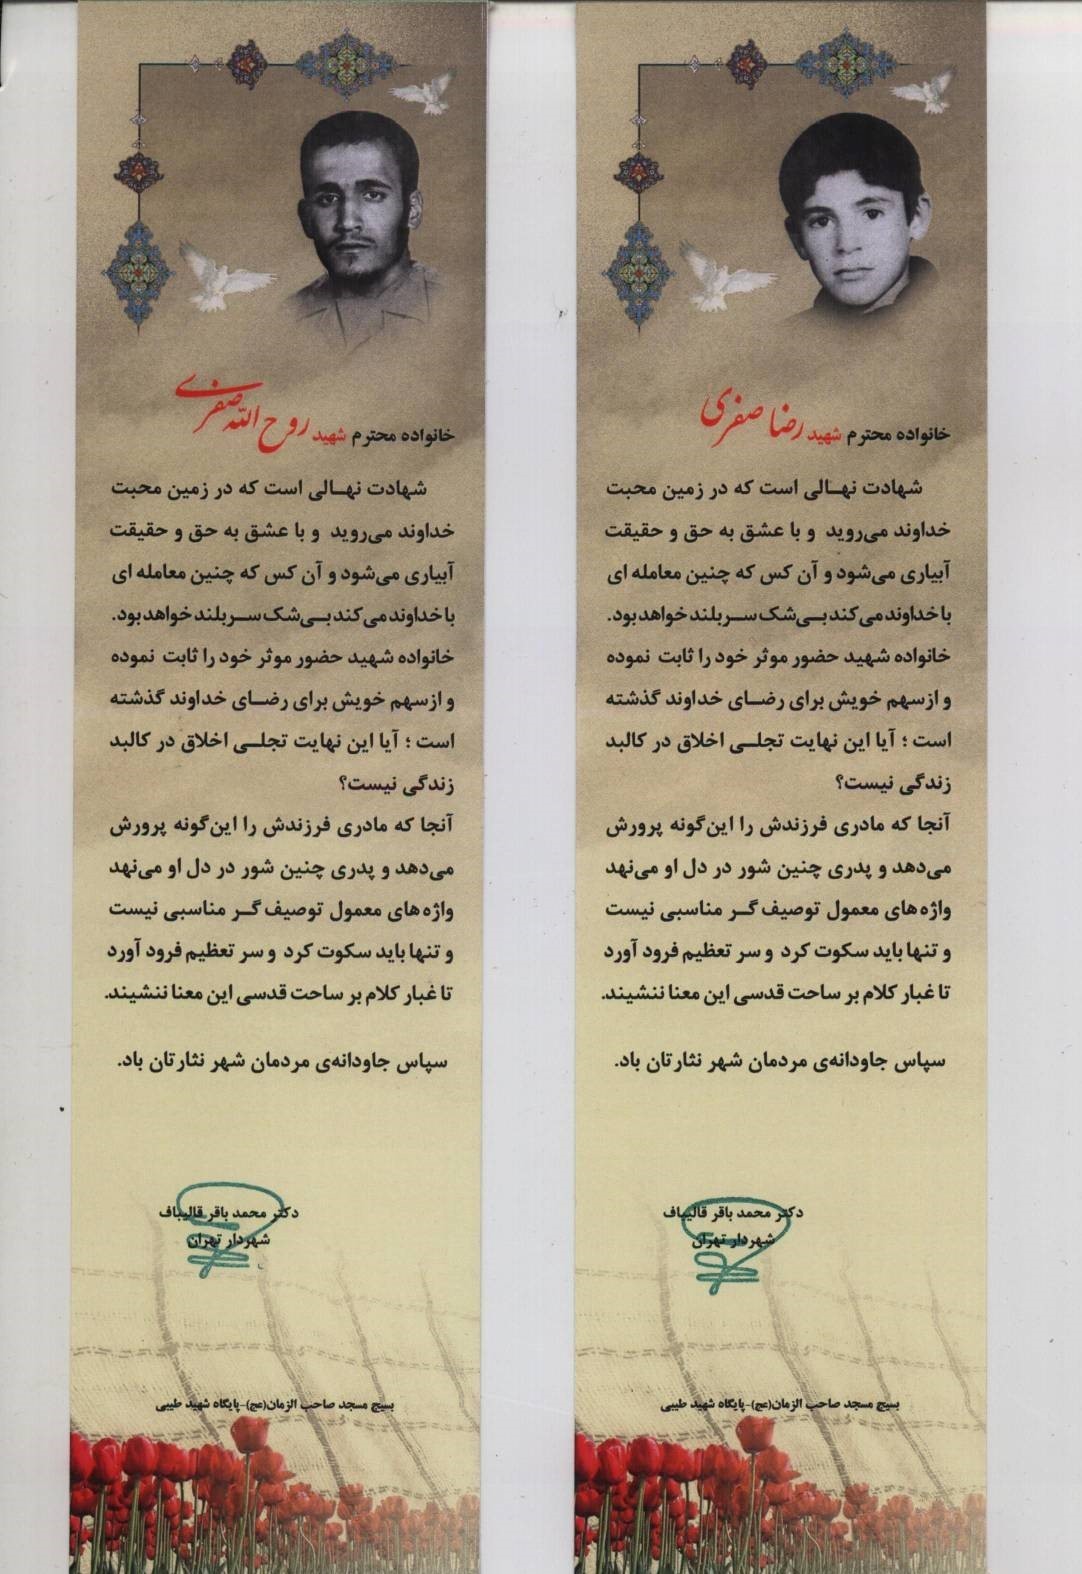 خانواده محترم شهید روح الله صفری
شهادت نهالی است که در زمین محبت
خداوند می‌روید و با عشق به حق و حقیقت
آبیاری می‌شود و آن کس که چنین معامله ای
با خداوند می کند بی‌شک سربلند خواهد بود.
خانواده شهید حضور موثر خود را ثابت نموده
و از سهم خویش برای رضای خداوند گذشته
است ؛ آیا این نهایت تجلی اخلاق در کالبد
زندگی نیست؟
آنجا که مادری فرزندش را این‌گونه پرورش
می‌دهد و پدری چنین شور در دل او می‌نهد
واژه های معمول توصیف گر مناسبی نیست
و تنها باید سکوت کرد و سر تعظیم فرود آورد
تا غبار کلام بر ساحت قدسی این معنا ننشیند.
سپاس جاودانه‌ی مردمان شهر نثارتان باد.
دکتر محمد باقر قالیباف
شهردار تهران
بسیج مسجد صاحب الزمان(عج)-پایگاه شهید طیبی
خانواده محترم شهید رضا صفری
شهادت نهالی است که در زمین محبت
خداوند می‌روید و با عشق به حق و حقیقت
آبیاری می‌شود و آن کس که چنین معامله ای
با خداوند می کند بی‌شک سربلند خواهد بود.
خانواده شهید حضور موثر خود را ثابت نموده
و از سهم خویش برای رضای خداوند گذشته
است ؛ آیا این نهایت تجلی اخلاق در کالبد
زندگی نیست؟
آنجا که مادری فرزندش را این‌گونه پرورش
می‌دهد و پدری چنین شور در دل او می‌نهد
واژه های معمول توصیف گر مناسبی نیست
و تنها باید سکوت کرد و سر تعظیم فرود آورد
تا غبار کلام بر ساحت قدسی این معنا ننشیند.
سپاس جاودانه‌ی مردمان شهر نثارتان باد.
دکتر محمد باقر قالیباف
شهردار تهران
بسیج مسجد صاحب الزمان(عج)-پایگاه شهید طیبی